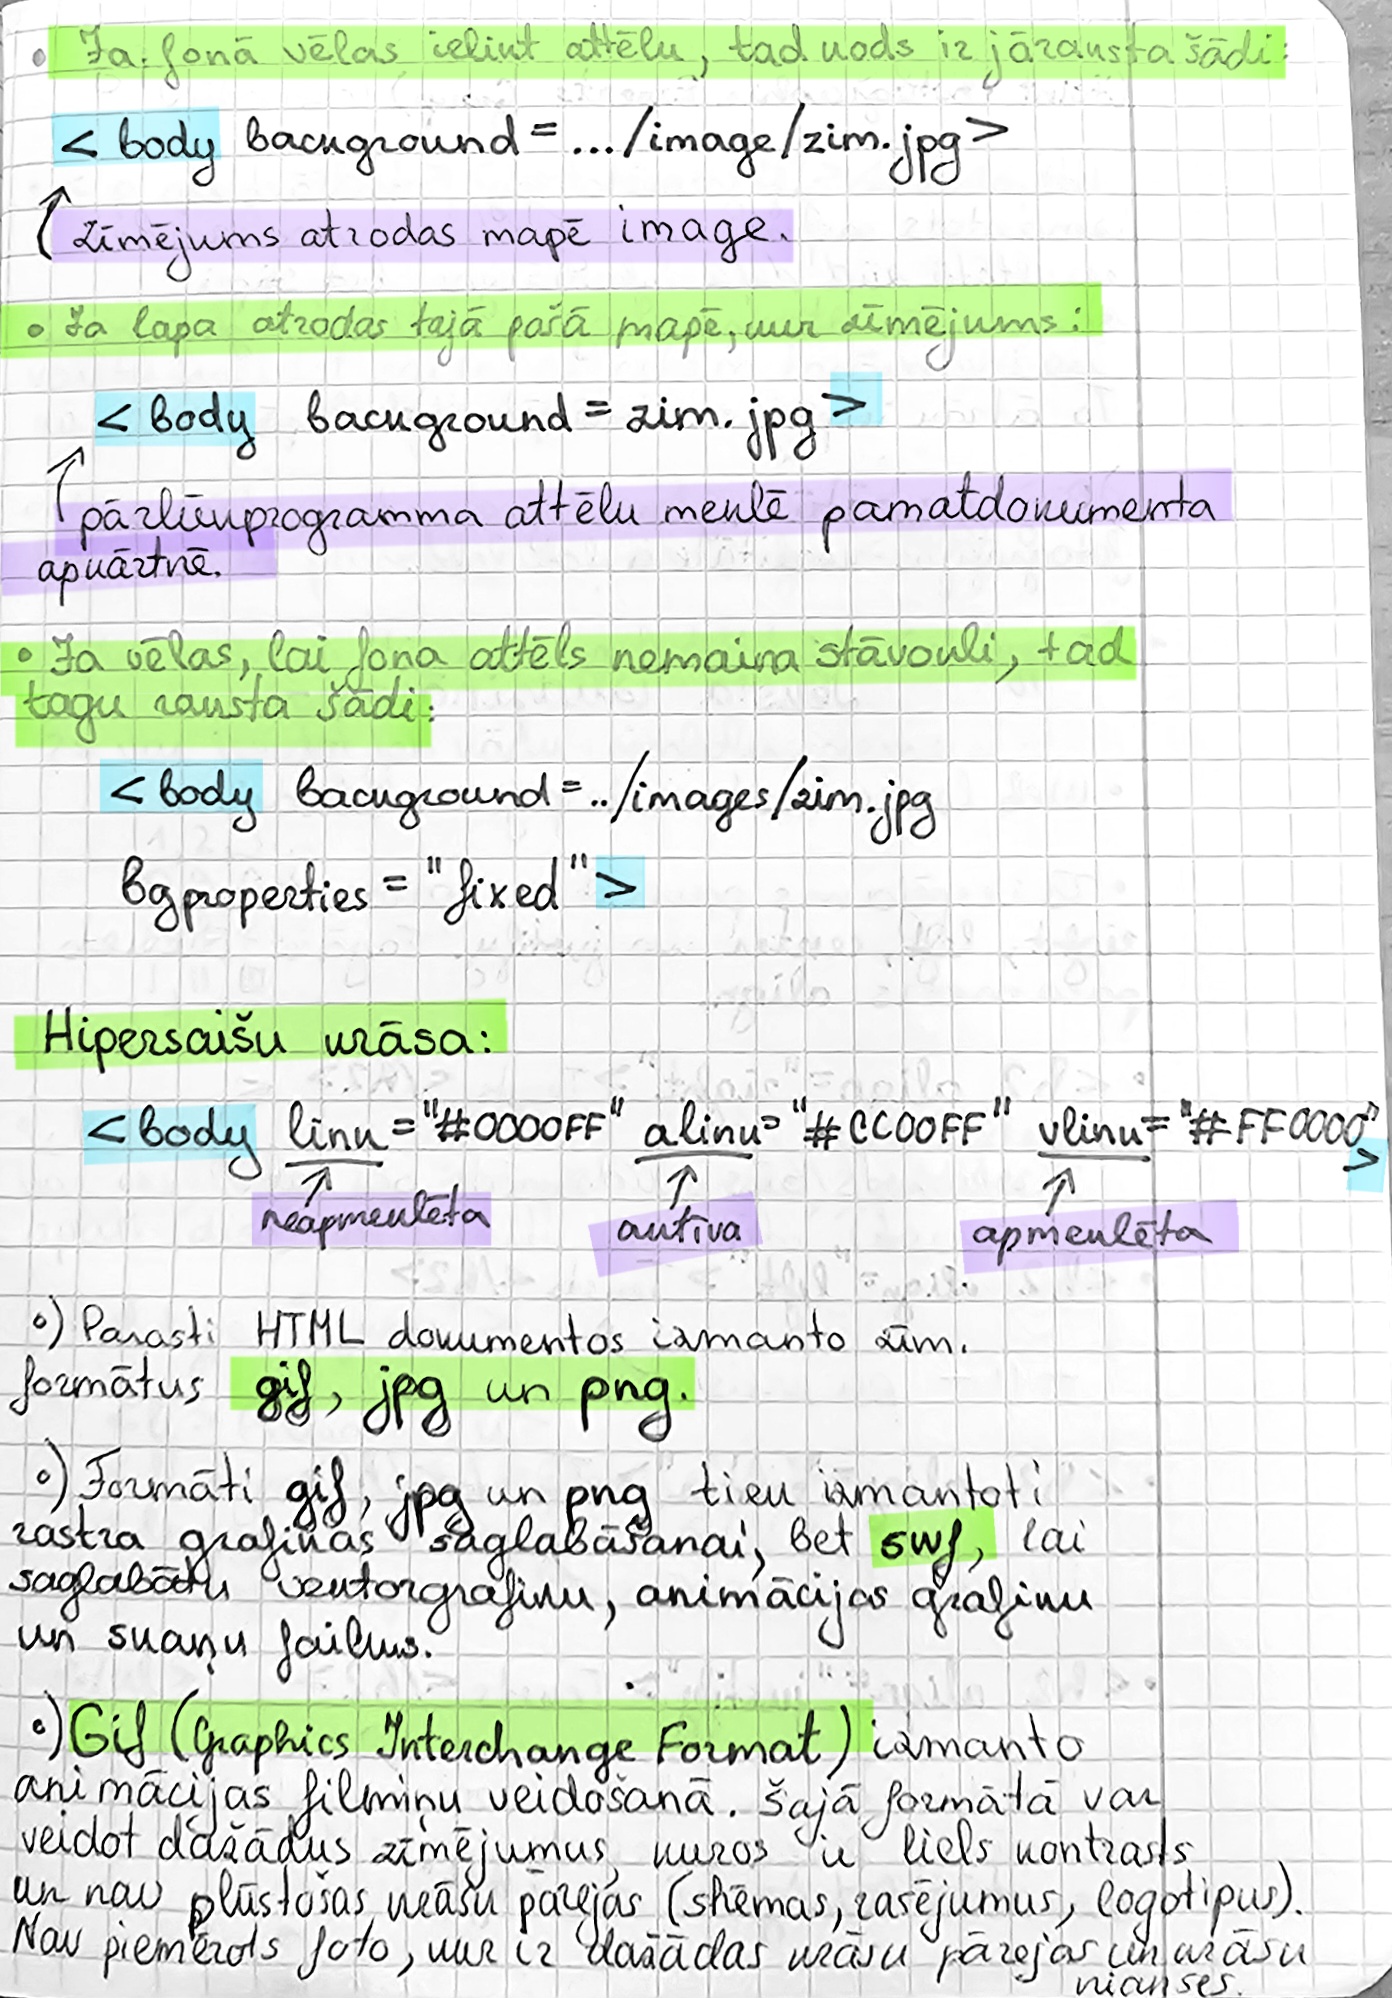 • Ja fonā vēlas ielikt attēlu, tad kods ir jāraksta šādi:
< body background = .../image/zim.jpg>
zīmējums atrodas mapē image.
• Ja lapa atrodas tajā pašā mapē, kur zīmējums:
< body background = zim.jpg >
pārlūkprogramma attēlu meklē pamatdokumenta
apkārtnē.
• Ja vēlas, lai fona attēls nemaina stāvokli, tad
tagu raksta šādi:
< body background = ../images/zim.jpg
bgproperties = "fixed" >
Hipersaišu krāsa:
< body link = "#0000FF" alink = "#CC00FF" vlink = "#FF0000"
>
neapmeklēta aktīva apmeklēta
°) Parasti HTML dokumentos izmanto zīm.
formātus gif, jpg un png.
°) Formāti gif, jpg un png tiek izmantoti
rastra grafikas saglabāšanai, bet swf, lai
saglabātu vektorgrafiku, animācijas grafiku
un skaņu failus.
°) Gif (Graphics Interchange Format) izmanto
animācijas filmiņu veidošanā. Šajā formātā var
veidot dažādus zīmējumus, kuros ir liels kontrasts
un nav plūstošas krāsu pārejas (shēmas, rasējumus, logotipus).
Nav piemērots foto, kur ir dažādas krāsu pārejas un krāsu
nianses.